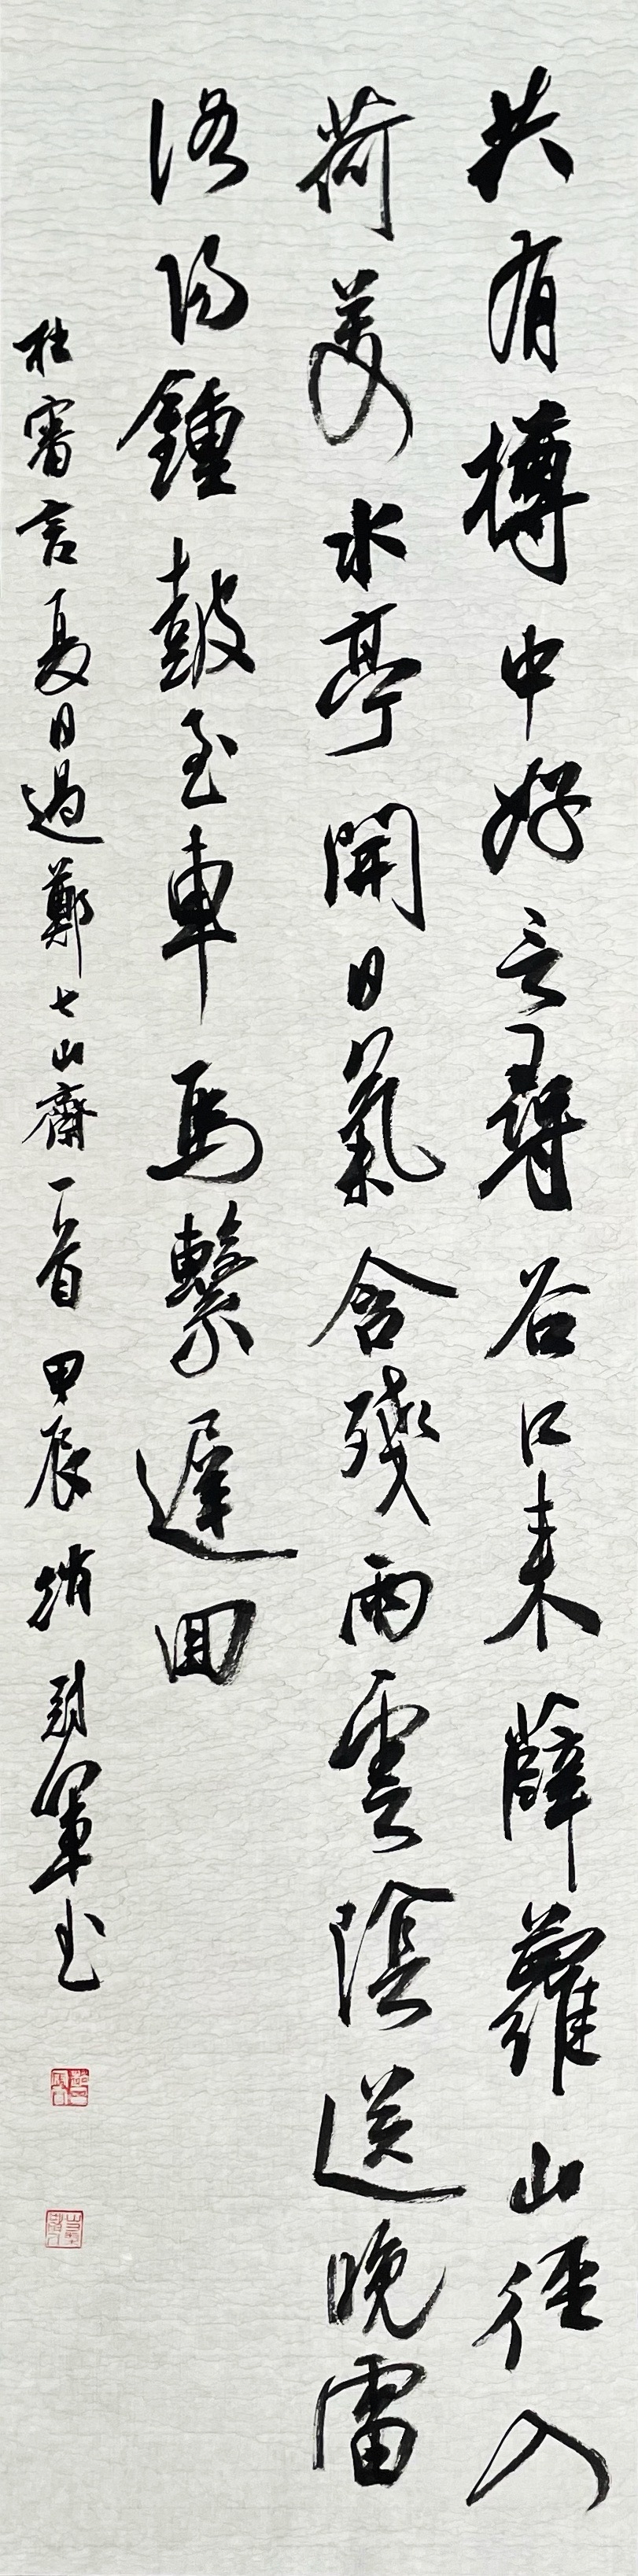 共有樽中好言尋谷口来薜蘿山徑入
荷芰水亭開日氣含殘雨雲陰送晚雷
洛陽鍾鼓至車馬繫遲回
杜審言夏日過鄭七山齋一首甲辰趙軍书